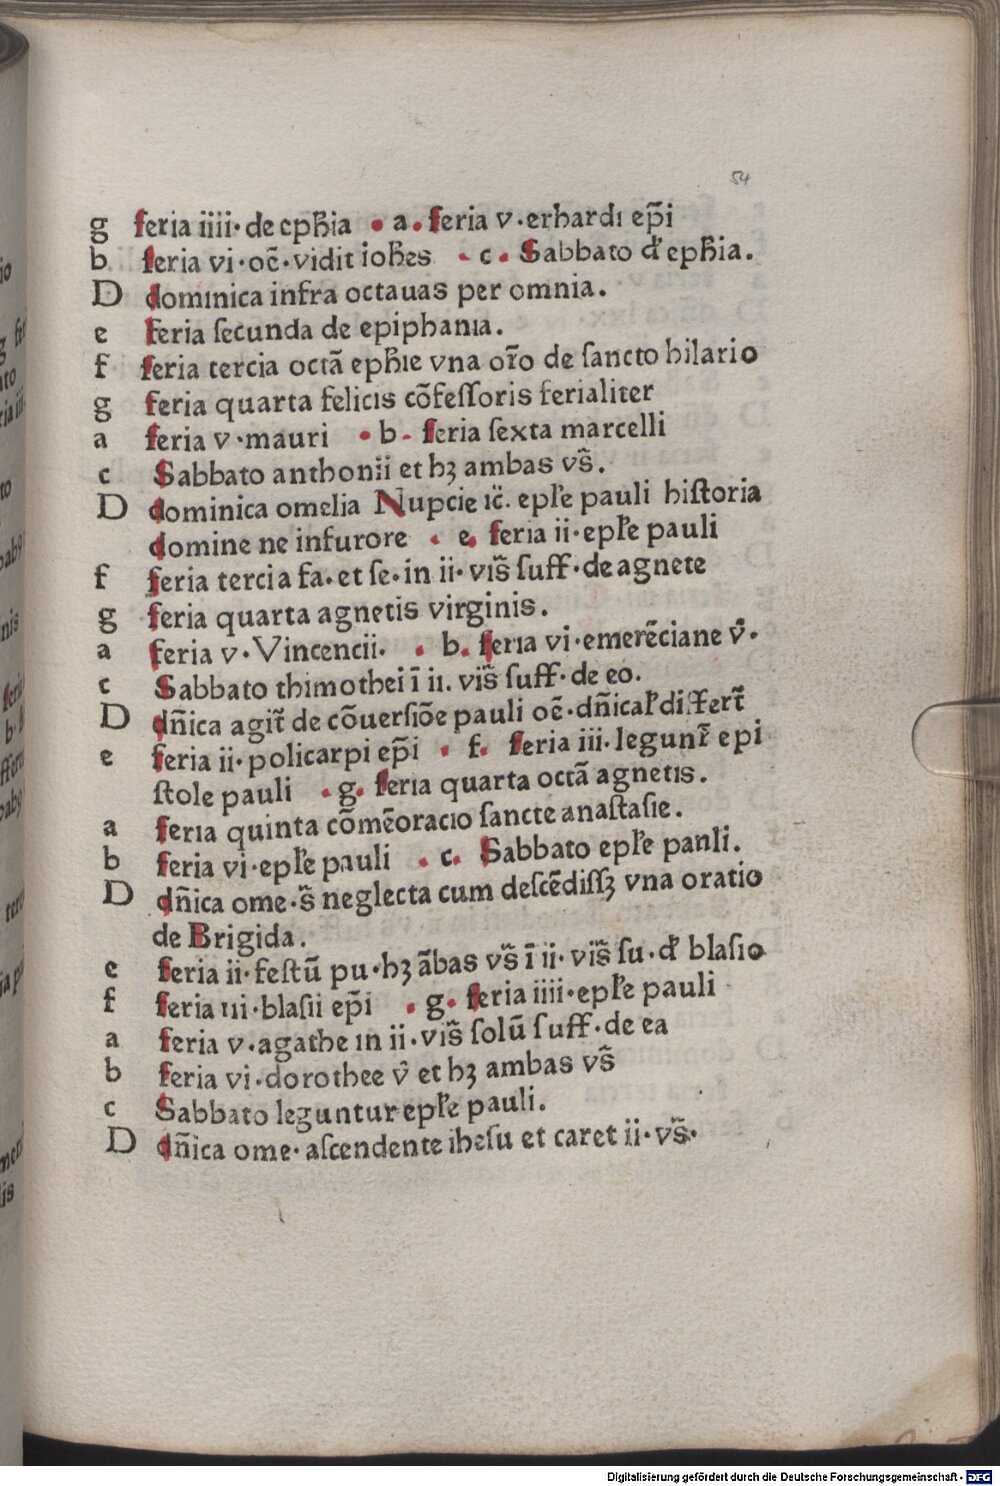 54
g feria iiii· de eph̄ia • a • feria v · erhardi ep̄i
b feria vi · oc̄ · vidit ioh̄es • c • Sabbato đ eph̄ia.
D dominica infra octauas per omnia.
e feria ſecunda de epiphania.
f feria tercia octā eph̄ie vna or̄o de ſancto hilario
g feria quarta felicis cōfeſſoris ferialiter
a feria v · mauri • b • feria ſexta marcelli
c Sabbato anthonii et hꝫ ambas vs̄.
D dominica omelia Nupcie ic̄. epl̄e pauli hiſtoria
domine ne infurore • e • feria ii · epl̄e pauli
f feria tercia fa. et ſe. in ii · vis̄ ſuff · de agnete
g feria quarta agnetis virginis.
a feria v · Vincencii. • b • feria vi · emerēciane v̄ ·
c Sabbato thimothei ī ii. vis̄ ſuff · de eo.
D dn̄ica agit̄ de cōuerſiōe pauli oē · dn̄ical̄ differt̄
e feria ii · policarpi ep̄i • f • feria iii · legunt̄ epi
ſtole pauli • g • feria quarta octā agnetis.
a feria quinta cōmēoracio ſancte anaſtaſie.
b feria vi · epl̄e pauli • c • Sabbato epl̄e panli.
D dn̄ica ome · s̄ neglecta cum deſcēdiſſꝫ vna oratio
de Brigida.
e feria ii · feſtū pu · hꝫ ābas vs̄ ī ii · vis̄ ſu · đ blaſio
f feria iii · blaſii ep̄i • g • feria iiii · epl̄e pauli
a feria v · agathe in ii · vis̄ ſolū ſuff · de ea
b feria vi · dorothee v̄ et hꝫ ambas vs̄
c Sabbato leguntur epl̄e pauli.
D dn̄ica ome · aſcendente iheſu et caret ii · vs̄ ·
Digitalisierung gefördert durch die Deutsche Forschungsgemeinschaft - DFG